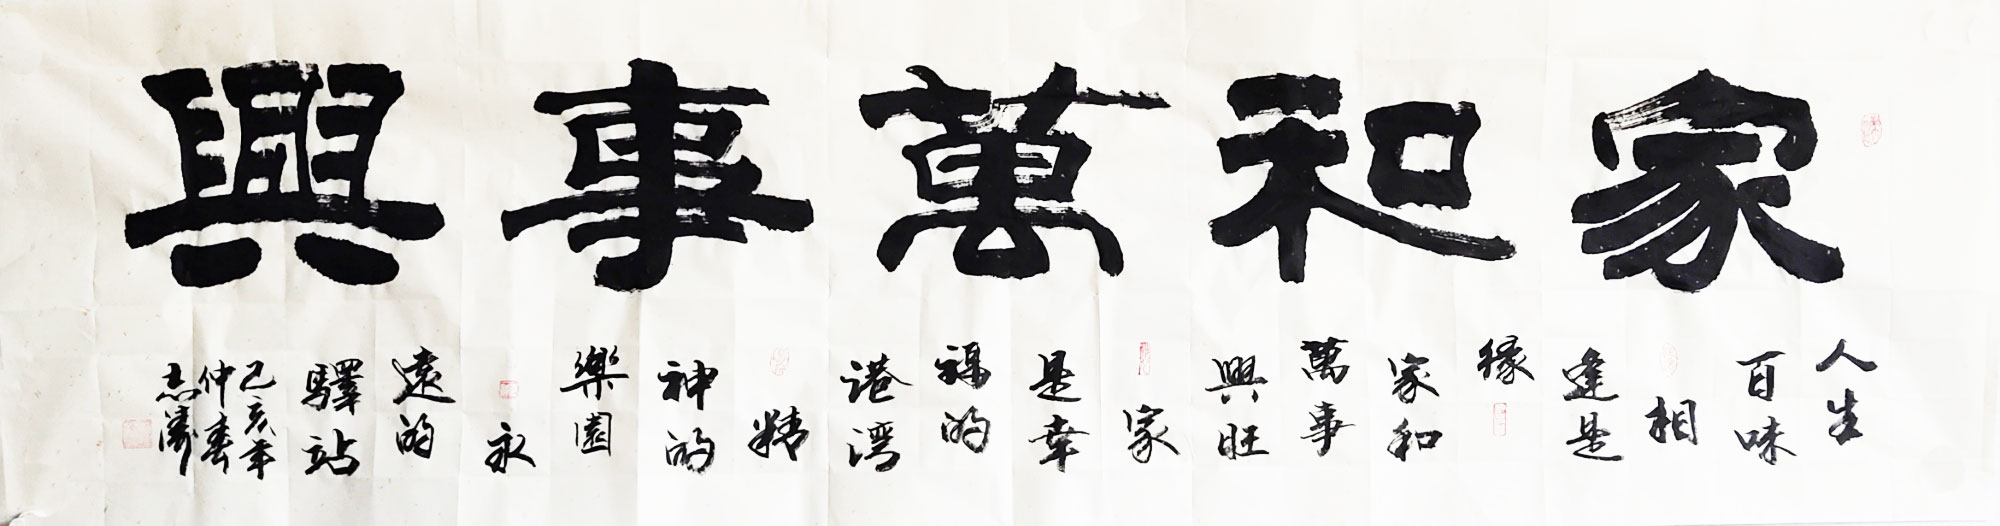 家和萬事興
人生
百味
相
逢是
緣
家和
萬事
興旺
家
是幸
福的
港湾
精
神的
樂園
永
遠的
驛站
己亥年
仲春
志濤